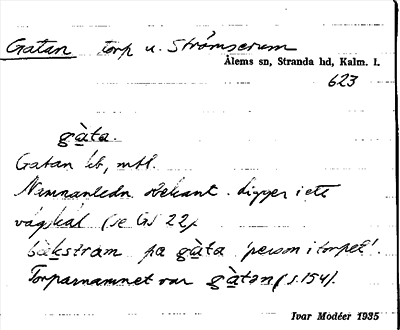 Gatan torp u. Strömserum
Ålems sn, Stranda hd, Kalm. l.
623
gàta.
Gatan kb, mtl.
Namnanledn obekant. Ligger i ett
vägskäl (se GS 22).
bàkstram pa gàta 'person i torpet'.
Torparnamnet var gàtən (s. 154).
Ivar Modéer 1935